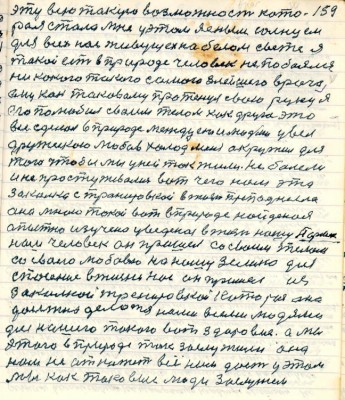 эту всю такую возможность кото- 159
рая стала мне у этом ясным солнцем
для всех нас живущих на белом свете я
такой есть в природе человек не побоялся
ни кокого такого самого злейшего врага,
ему как таковому протянул свою руку я
его полюбил своим телом как друга это
все сделал в природе между ею и людьми увел
дружескою любов холод мы окружил для
того чтобы мы у ней так жили. не болели
и не простуживалис вот чего нам эта
закалка с транировкой в жизни
она мною такой вот в природе найденая
опытно изучено уведена в жизн нашу
наш человек он пришел со своим телом
со своею любовю на нашу Землю для
спасение в жизни нас он пришел из
Закалкой тренировкой котораю она
должна делатся нами всеми людями
для нашего такого вот здоровия. а мы
этого в природе так заслужили она
нам не откажет все нам даст у этом
мы как таковые люди Заслужем